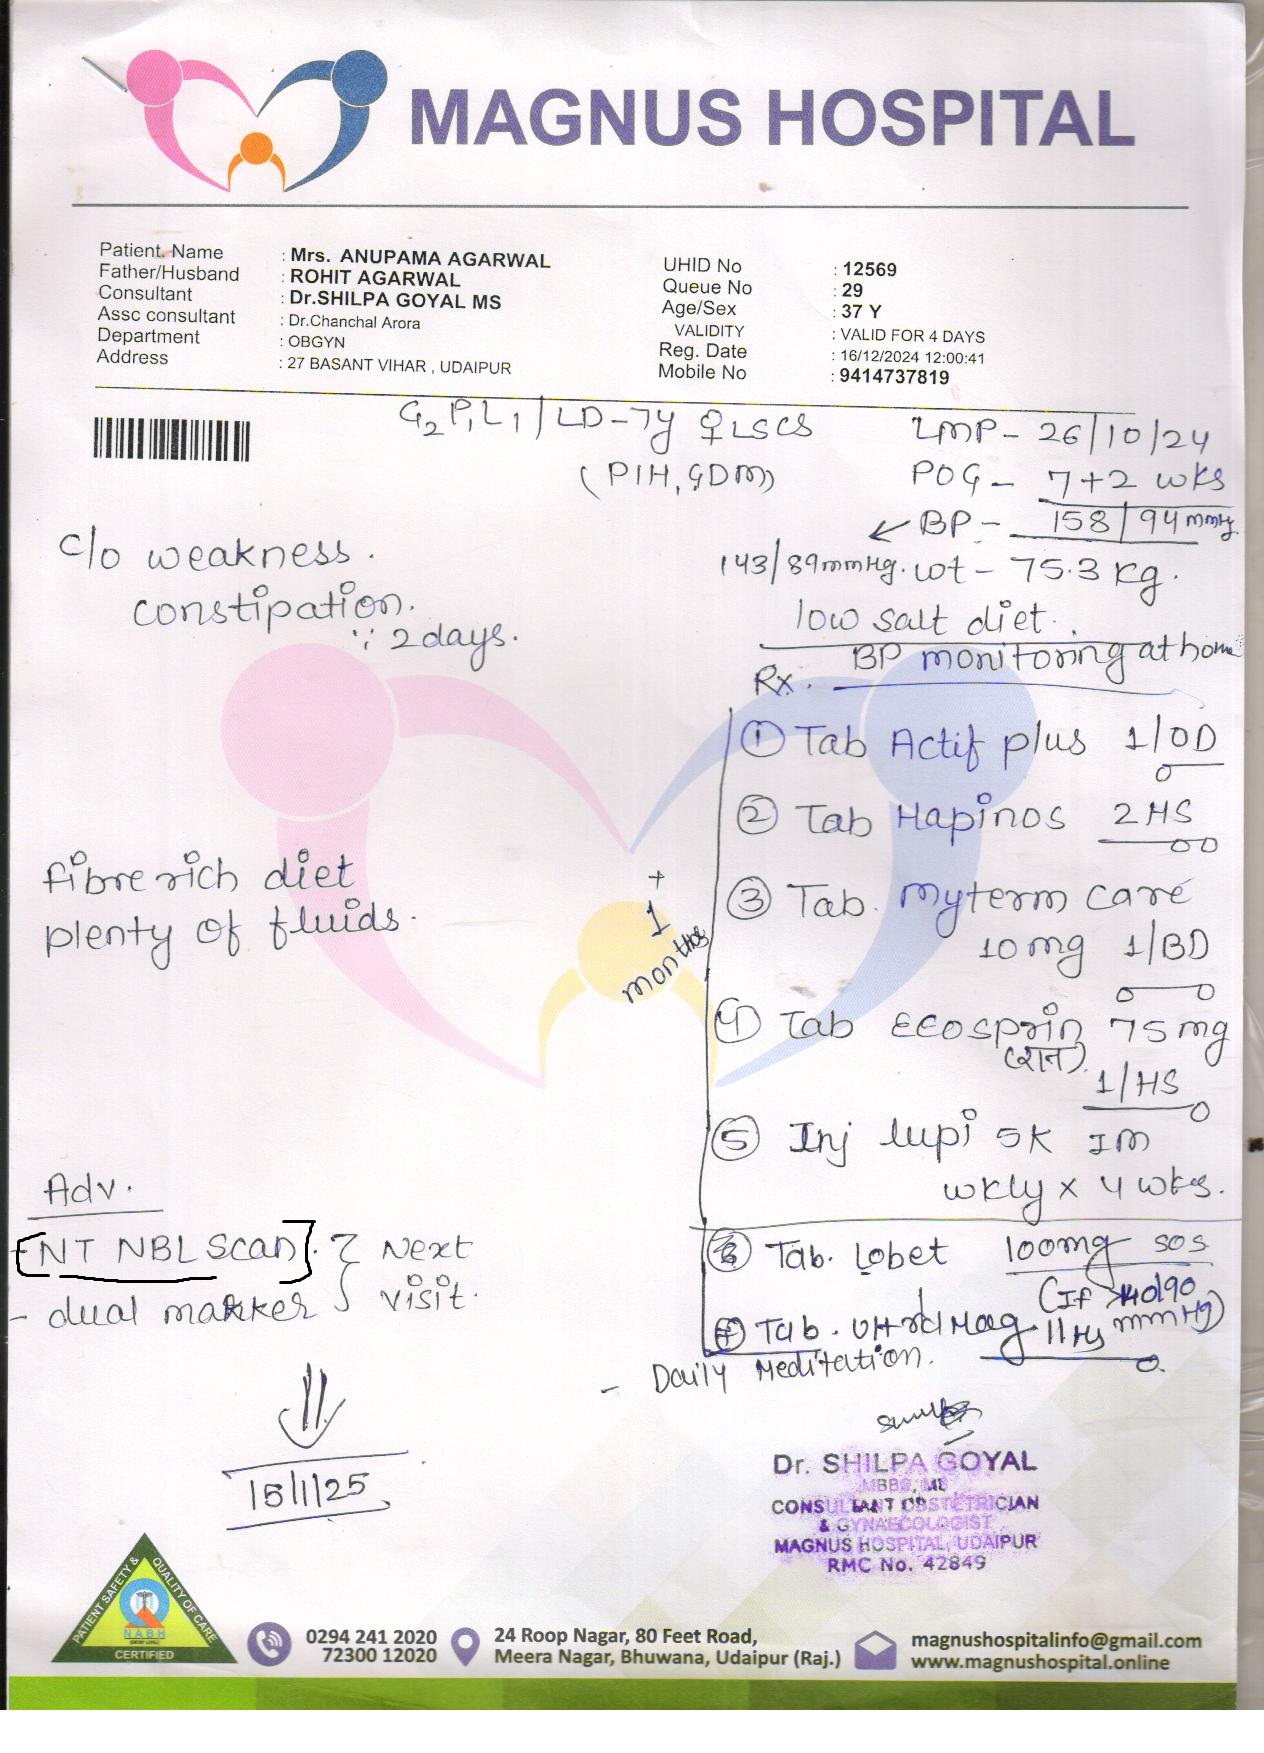 MAGNUS HOSPITAL
Patient Name : Mrs. ANUPAMA AGARWAL
Father/Husband : ROHIT AGARWAL
Consultant : Dr.SHILPA GOYAL MS
Assc consultant : Dr.Chanchal Arora
Department : OBGYN
Address : 27 BASANT VIHAR , UDAIPUR
UHID No : 12569
Queue No : 29
Age/Sex : 37 Y
VALIDITY : VALID FOR 4 DAYS
Reg. Date : 16/12/2024 12:00:41
Mobile No : 9414737819
G2P1L1/LD-7y ♀ LSCS
(PIH, GDM)
LMP- 26/10/24
POG- 7+2 wks
BP- 158/94 mmHg
143/89mmHg. wt- 75.3 kg.
c/o weakness.
constipation.
∵ 2days.
low salt diet.
BP monitoring at home
Rx.
① Tab Actif plus 1/OD
② Tab Hapinos 2HS
③ Tab. Myterm Care
10mg 1/BD
④ Tab Ecosprin 75mg
(रात)
1/HS
⑤ Inj lupi 5K IM
wkly x 4 wks.
+
1
months
fibre rich diet
plenty of fluids.
Adv.
- NT NBL Scan. } Next
- dual marker } visit.
⑥ Tab. Lobet 100mg SOS
(If >140/90
mmHg)
Tab. Mag. 1HS
- Daily Meditation.
15/1/25
Dr. SHILPA GOYAL
MBBS, MS
CONSULTANT OBSTETRICIAN
& GYNAECOLOGIST
MAGNUS HOSPITAL, UDAIPUR
RMC No. 42849
PATIENT SAFETY & QUALITY OF CARE
NABH
CERTIFIED
0294 241 2020
72300 12020
24 Roop Nagar, 80 Feet Road,
Meera Nagar, Bhuwana, Udaipur (Raj.)
magnushospitalinfo@gmail.com
www.magnushospital.online